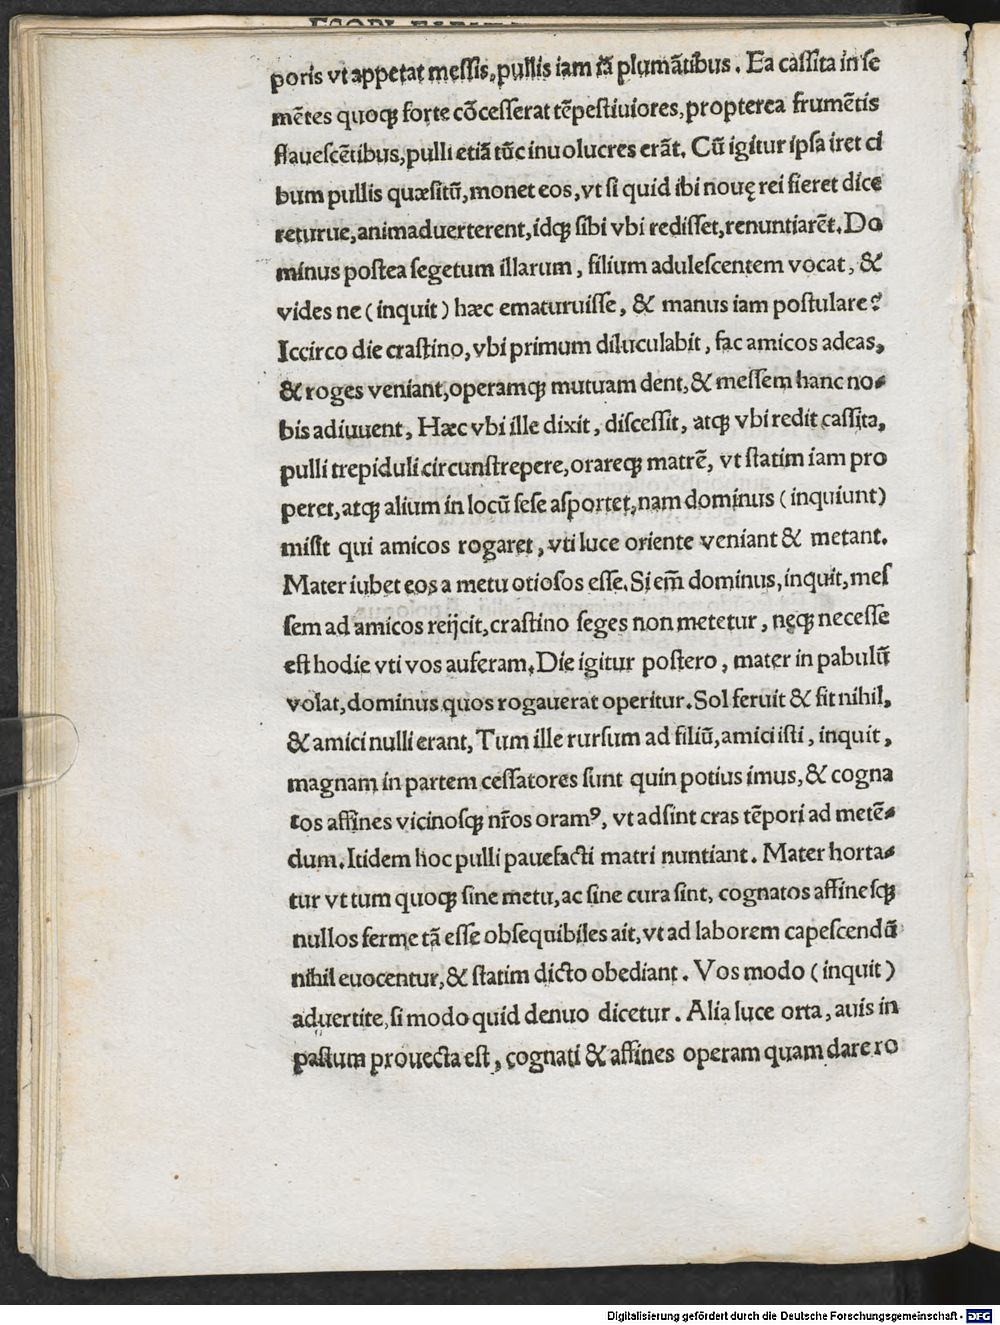 poris vt appetat messis, pullis iam iã plumãtibus. Ea cassita in se
mētes quoqꝫ forte cōcesserat tēpestiuiores, propterea frumētis
flauescētibus, pulli etiã tūc inuolucres erãt. Cū igitur ipsa iret ci
bum pullis quæsitū, monet eos, vt si quid ibi nouę rei fieret dice
returue, animaduerterent, idqꝫ sibi vbi redisset, renuntiarēt. Do
minus postea segetum illarum, filium adulescentem vocat, &
vides ne (inquit) hæc ematuruisse, & manus iam postulare?
Iccirco die crastino, vbi primum diluculabit, fac amicos adeas,
& roges veniant, operamqꝫ mutuam dent, & messem hanc no-
bis adiuuent, Hæc vbi ille dixit, discessit, atqꝫ vbi redit cassita,
pulli trepiduli circunstrepere, orareqꝫ matrē, vt statim iam pro
peret, atqꝫ alium in locū sese asportet, nam dominus (inquiunt)
misit qui amicos rogaret, vti luce oriente veniant & metant.
Mater iubet eos a metu otiosos esse. Si em̄ dominus, inquit, mes
sem ad amicos reijcit, crastino seges non metetur, neqꝫ necesse
est hodie vti vos auferam. Die igitur postero, mater in pabulū
volat, dominus quos rogauerat operitur. Sol feruit & fit nihil,
& amici nulli erant, Tum ille rursum ad filiū, amici isti, inquit,
magnam in partem cessatores sunt quin potius imus, & cogna
tos affines vicinosqꝫ nr̄os oramꝰ, vt adsint cras tēpori ad metē-
dum. Itidem hoc pulli pauefacti matri nuntiant. Mater horta-
tur vt tum quoqꝫ sine metu, ac sine cura sint, cognatos affinesqꝫ
nullos ferme tã esse obsequibiles ait, vt ad laborem capescendū
nihil euocentur, & statim dicto obediant. Vos modo (inquit)
aduertite, si modo quid denuo dicetur. Alia luce orta, auis in
pastum prouecta est, cognati & affines operam quam dare ro
Digitalisierung gefördert durch die Deutsche Forschungsgemeinschaft - DFG